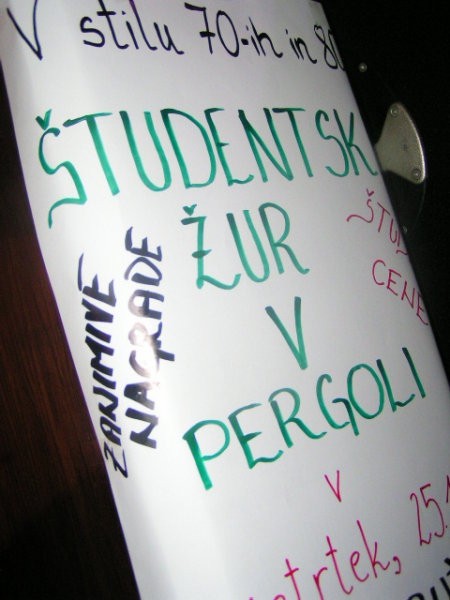 V stilu 70-ih in 80
ŠTUDENTSK
ŽUR
V
PERGOLI
ZANIMIVE
NAGRADE
ŠTUD
CENE
V
etrtek, 25.